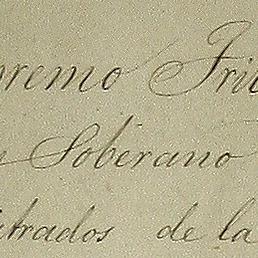 premo Tri
Soberano
trados de la